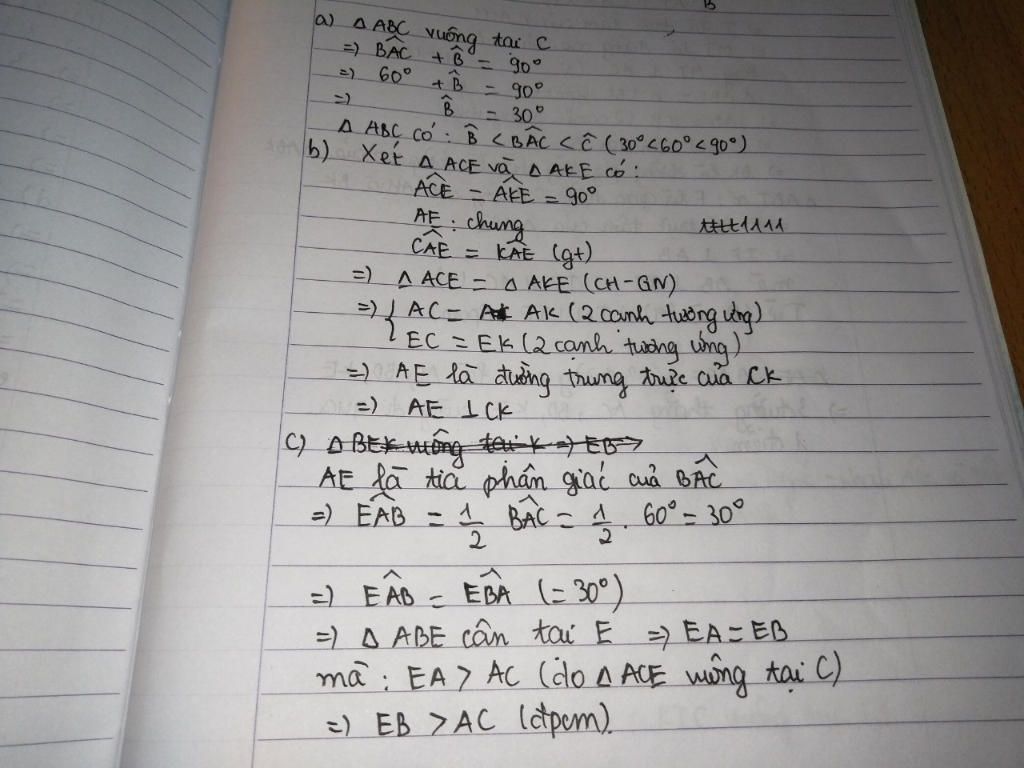 B
a) △ ABC vuông tại C
=> BÂC + B̂ = 90°
=> 60° + B̂ = 90°
=> B̂ = 30°
△ ABC có : B̂ < BÂC < Ĉ (30° < 60° < 90°)
b) Xét △ ACE và △ AKE có :
AĈE = AK̂E = 90°
AE : chung
CÂE = KÂE (gt)
=> △ ACE = △ AKE (CH-GN)
=> { AC = AK (2 cạnh tương ứng)
EC = EK (2 cạnh tương ứng)
=> AE là đường trung trực của CK
=> AE ⊥ CK
c) △ BEK vuông tại K => EB >
AE là tia phân giác của BÂC
=> EÂB = 1/2 BÂC = 1/2 . 60° = 30°
=> EÂB = EB̂A (= 30°)
=> △ ABE cân tại E => EA = EB
mà : EA > AC (do △ ACE vuông tại C)
=> EB > AC (đpcm).